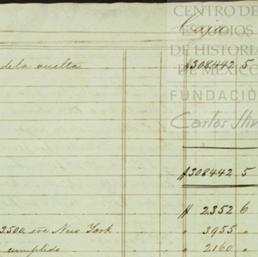 CENTRO DE
ESTUDIOS
DE HISTORIA
DE MÉXICO
FUNDACIÓN
Carlos Slim
Caja
de la vuelta $308442 5
$308442 5
$ 2352 6
3500 New York " 3955 "
cumplido " 2160 "